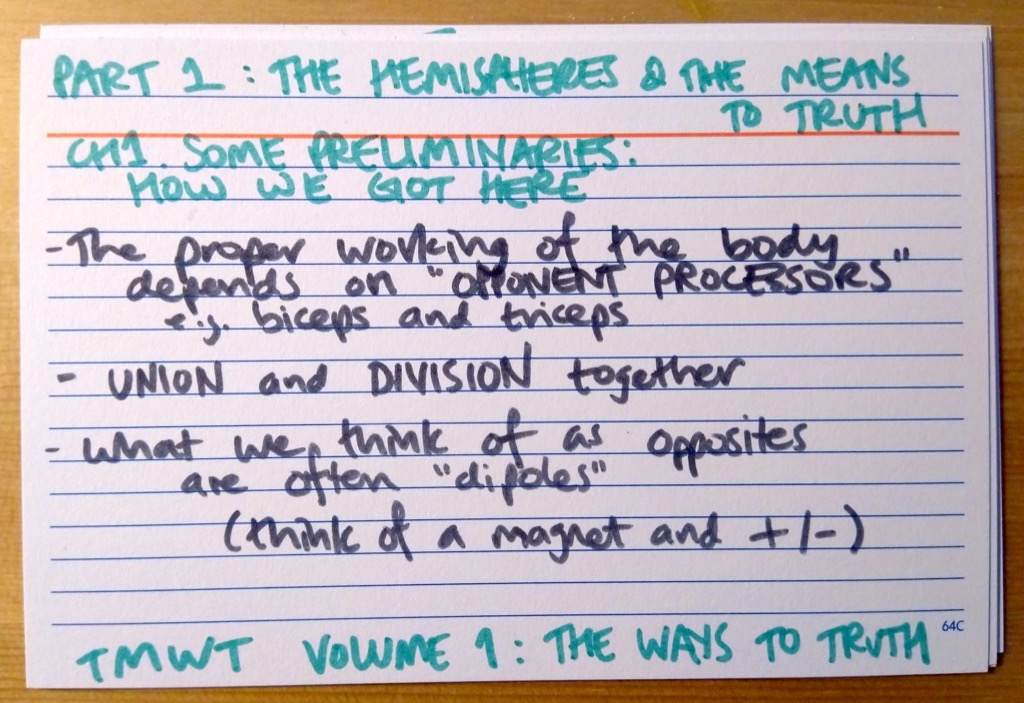 PART 1 : THE HEMISPHERES & THE MEANS
TO TRUTH
CH1. SOME PRELIMINARIES:
HOW WE GOT HERE
- The proper working of the body
depends on "OPPONENT PROCESSORS"
e.g. biceps and triceps
- UNION and DIVISION together
- What we think of as opposites
are often "dipoles"
(think of a magnet and +/-)
64C
TMWT VOLUME 1 : THE WAYS TO TRUTH